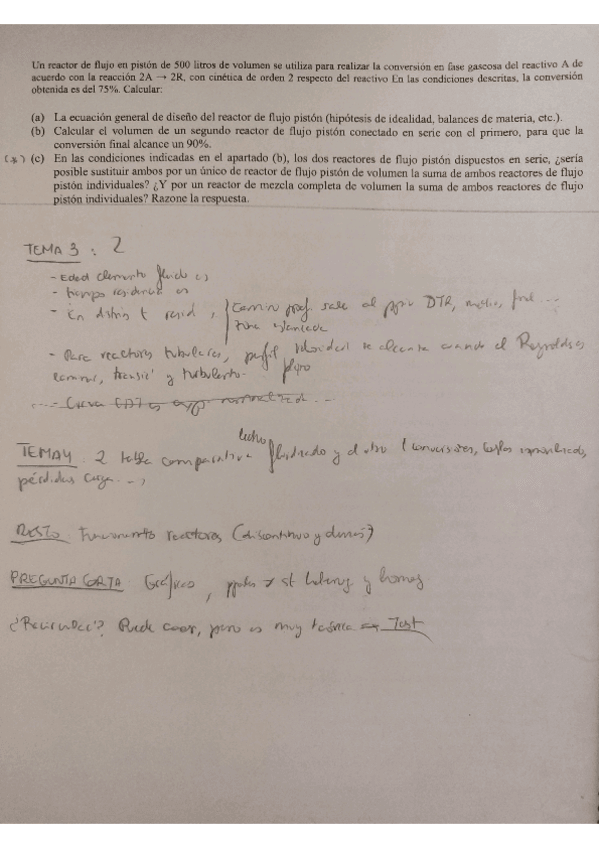 Un reactor de flujo en pistón de 500 litros de volumen se utiliza para realizar la conversión en fase gaseosa del reactivo A de
acuerdo con la reacción 2A → 2R, con cinética de orden 2 respecto del reactivo En las condiciones descritas, la conversión
obtenida es del 75%. Calcular:
(a) La ecuación general de diseño del reactor de flujo pistón (hipótesis de idealidad, balances de materia, etc.).
(b) Calcular el volumen de un segundo reactor de flujo pistón conectado en serie con el primero, para que la
conversión final alcance un 90%.
(*) (c) En las condiciones indicadas en el apartado (b), los dos reactores de flujo pistón dispuestos en serie, ¿sería
posible sustituir ambos por un único de reactor de flujo pistón de volumen la suma de ambos reactores de flujo
pistón individuales? ¿Y por un reactor de mezcla completa de volumen la suma de ambos reactores de flujo
pistón individuales? Razone la respuesta.
TEMA 3 : 2
- Edad elemento fluido es
- tiempo residencia es
- En distrib t resid, Camino pref. sale al ppio DTR,
zona estancada
- Para reactores tubulares, perfil velocidad se alcanza cuando el Reynolds es
laminar, y turbulento. flujo
TEMA 4 : 2 tabla comparativa lecho fluidizado y el otro (conversiones,
pérdidas carga...)
RESTO: Funcionamiento reactores (discontinuo y demás)
PREGUNTA CORTA: Gráfico, y homog
¿Recirculac? Puede caer, pero es muy teórica → Test